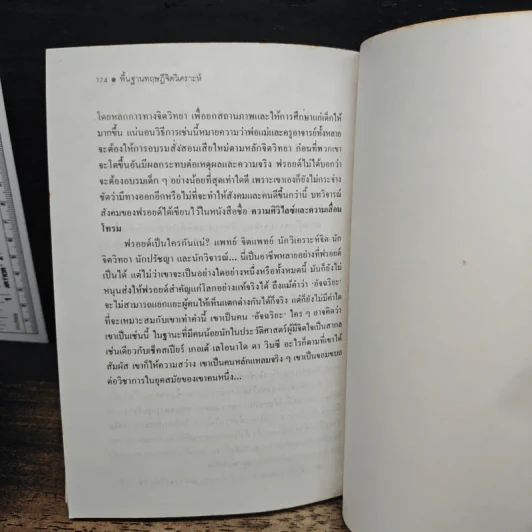 174 ● พื้นฐานทฤษฎีจิตวิเคราะห์
โดยหลักการทางจิตวิทยา เพื่อยกสถานภาพและให้การศึกษาแก่เด็กให้
มากขึ้น แน่นอนวิธีการเช่นนี้หมายความว่าพ่อแม่และครูอาจารย์ทั้งหลาย
จะต้องให้การอบรมสั่งสอนเสียใหม่ตามหลักจิตวิทยา ก่อนที่พวกเขา
จะโตขึ้นอันมีผลกระทบต่อเหตุผลและความจริง ฟรอยด์ไม่ได้บอกว่า
จะต้องอบรมเด็ก ๆ อย่างน้อยที่สุดเท่าใดดี เพราะเขาเองก็ยังไม่กระจ่าง
ชัดว่ามีทางออกอีกหรือไม่ที่จะทำให้สังคมและคนดีขึ้นกว่านี้ บทวิจารณ์
สังคมของฟรอยด์ได้เขียนไว้ในหนังสือชื่อ ความศิวิไลซ์และความเสื่อม
โทรม
ฟรอยด์เป็นใครกันแน่? แพทย์ จิตแพทย์ นักวิเคราะห์จิต นัก
จิตวิทยา นักปรัชญา และนักวิจารณ์... นี่เป็นอาชีพหลายอย่างที่ฟรอยด์
เป็นได้ แต่ไม่ว่าเขาจะเป็นอย่างใดอย่างหนึ่งหรือทั้งหมดนี้ มันก็ยังไม่
หนุนส่งให้ฟรอยด์สำคัญแก่โลกอย่างแท้จริงได้ ถึงแม้คำว่า 'อัจฉริยะ'
จะไม่สามารถแยกแยะผู้คนให้เห็นแตกต่างกันได้ก็จริง แต่ก็ยังไม่มีคำใด
ที่จะเหมาะสมกับเขาเท่าคำนี้ เขาเป็นคน 'อัจฉริยะ' ใคร ๆ อาจคิดว่า
เขาเป็นเช่นนี้ ในฐานะที่มีคนน้อยนักในประวัติศาสตร์ผู้มีจิตใจเป็นสากล
เช่นเดียวกับเช็คสเปียร์ เกอเต้ เลโอนาโด ดา วินซี อะไรก็ตามที่เขาได้
สัมผัส เขาก็ให้ความสว่าง เขาเป็นคนหลักแหลมจริง ๆ เขาเป็นจอมขบถ
ต่อวิชาการในยุคสมัยของเขาคนหนึ่ง...